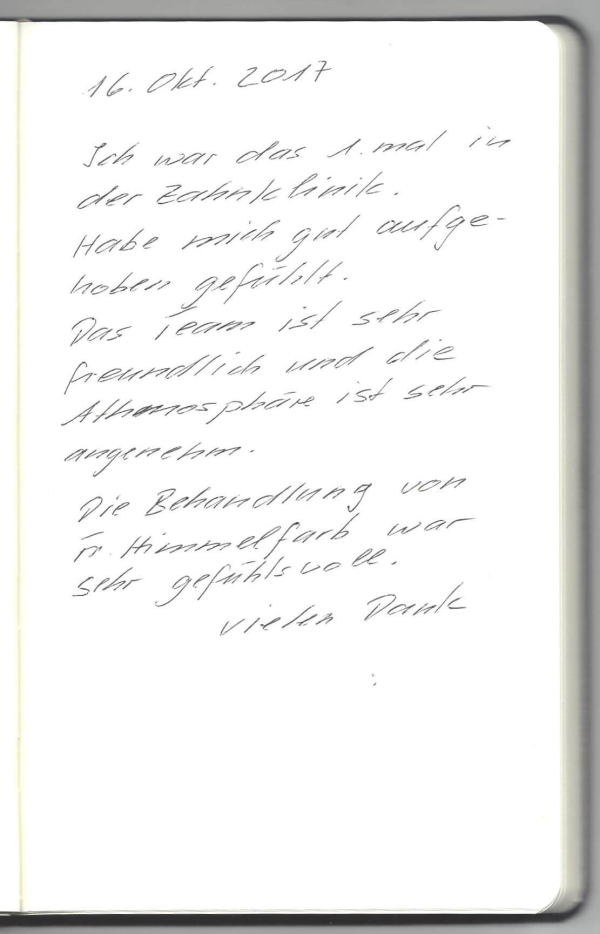 16. Okt. 2017
Ich war das 1. mal in
der Zahnklinik.
Habe mich gut aufge-
hoben gefühlt.
Das Team ist sehr
freundlich und die
Athmosphäre ist sehr
angenehm.
Die Behandlung von
Fr. Himmelfarb war
sehr gefühlsvoll.
Vielen Dank